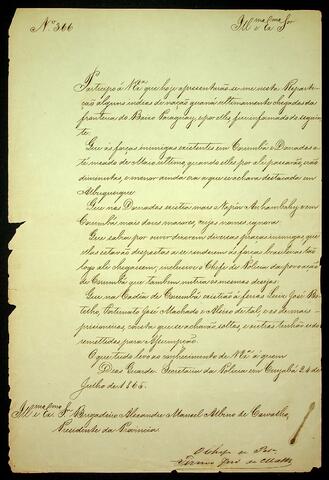 Nº 366
Illmo e Exmo Snr
Participo á V.Exª que hoje apresentarão-se me nesta Reparti-
ção alguns indios da nação guaná ultimamente chegados da
fronteira do Baixo Paraguay, e por elles fui informado do seguin-
te.
Que as forças inimigas existentes em Corumbá e Dourados a-
té meado de Maio ultimo, quando elles por ali passarão, são
diminutas, e menor ainda era a que se achava destacada em
Albuquerque.
Que nos Dourados existia mais o Major
em
Corumbá mais dous maiores, cujos nomes ignora.
Que sabia por ouvir dizerem diversas praças inimigas, que
ellas estavão dispostas a se renderem ás forças brasileiras tão
logo ali chegassem, inclusive o Chefe de Policia da povoação
de Corumbá que tambem nutria os mesmos desejos.
Que na Cadêa de Corumbá existião a ferros Luiz José Bo-
telho, Fortunato José Machado e Aleixo de tal, e os demais
prisioneiros, consta que se achavão soltos, e outros tinhão sido
remettidos para Assumpção.
O que tudo levo ao conhecimento de V.Exª á quem
Deos Guarde. Secretaria da Policia em Cuyabá 24 de
Julho de 1865.
Illmo e Exmo Sr. Brigadeiro Alexandre Manoel Albino de Carvalho,
Presidente da Provincia.
O Chefe de Pol.
Firmo José de Mattos